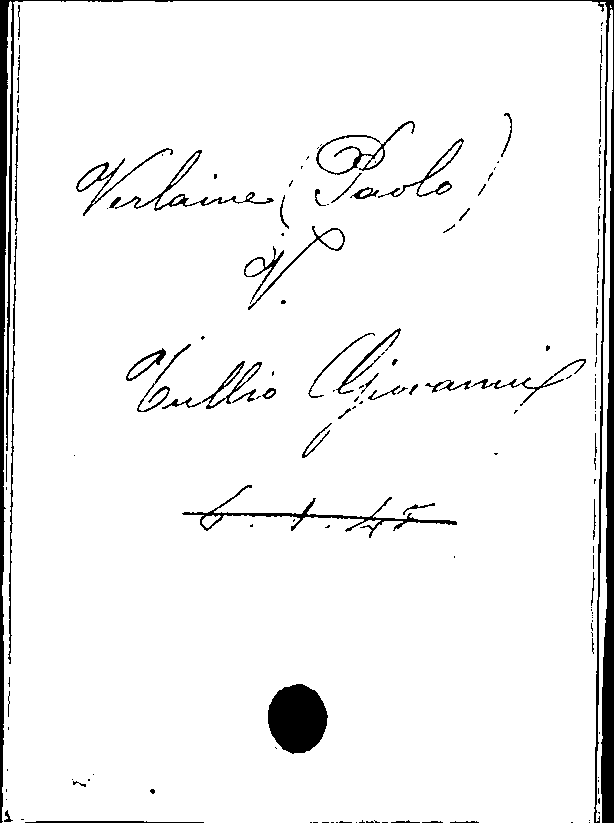 Verlaine (Paolo)
V.
Tullio Giovanni
6. 1. 45